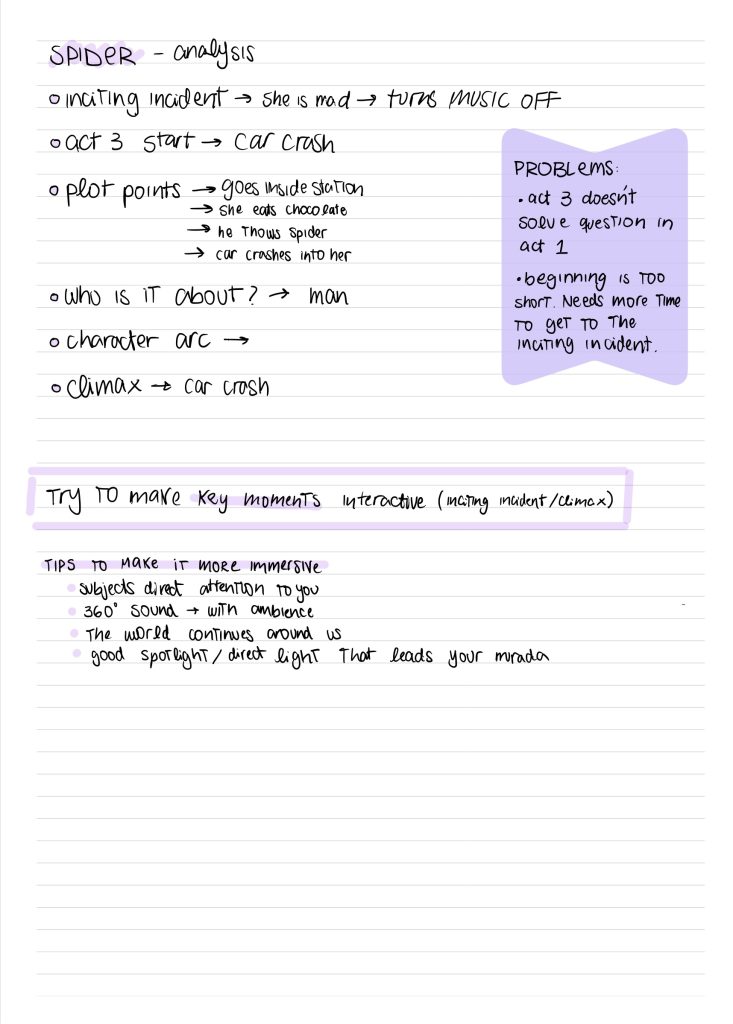 SPIDER - analysis
inciting incident → she is mad → turns MUSIC OFF
act 3 start → car crash
plot points → goes inside station
→ she eats chocolate
→ he thows spider
→ car crashes into her
who is it about? → man
character arc →
climax → car crash
PROBLEMS:
• act 3 doesn't
solve question in
act 1
• beginning is too
short. Needs more time
to get to the
inciting incident.
Try to make key moments interactive (inciting incident/climax)
TIPS TO MAKE IT MORE IMMERSIVE
• subjects direct attention to you
• 360° sound → with ambience
• the world continues around us
• good spotlight/direct light that leads your mirada